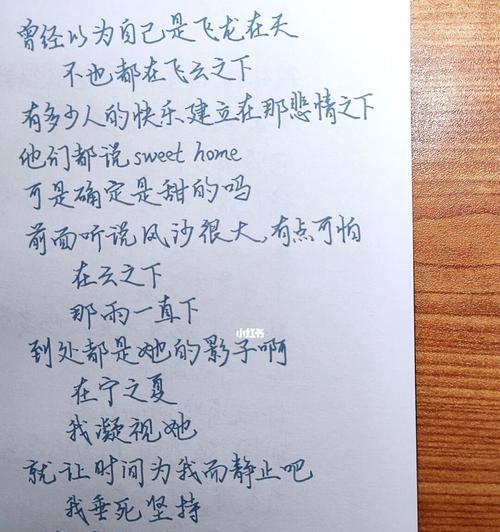 曾经以为自己是飞龙在天
不也都在飞云之下
有多少人的快乐建立在那悲情之下
他们都说sweet home
可是确定是甜的吗
前面听说风沙很大,有点可怕
在云之下
那雨一直下
小红书
到处都是她的影子啊
在宁之夏
我凝视她
就让时间为我而静止吧
我垂死坚持